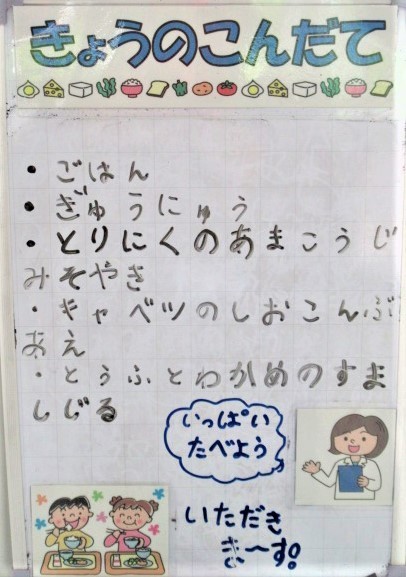 きょうのこんだて
・ごはん
・ぎゅうにゅう
・とりにくのあまこうじ
みそやき
・キャベツのしおこんぶ
あえ
・とうふとわかめのすま
しじる
いっぱい
たべよう
いただき
ま～す。